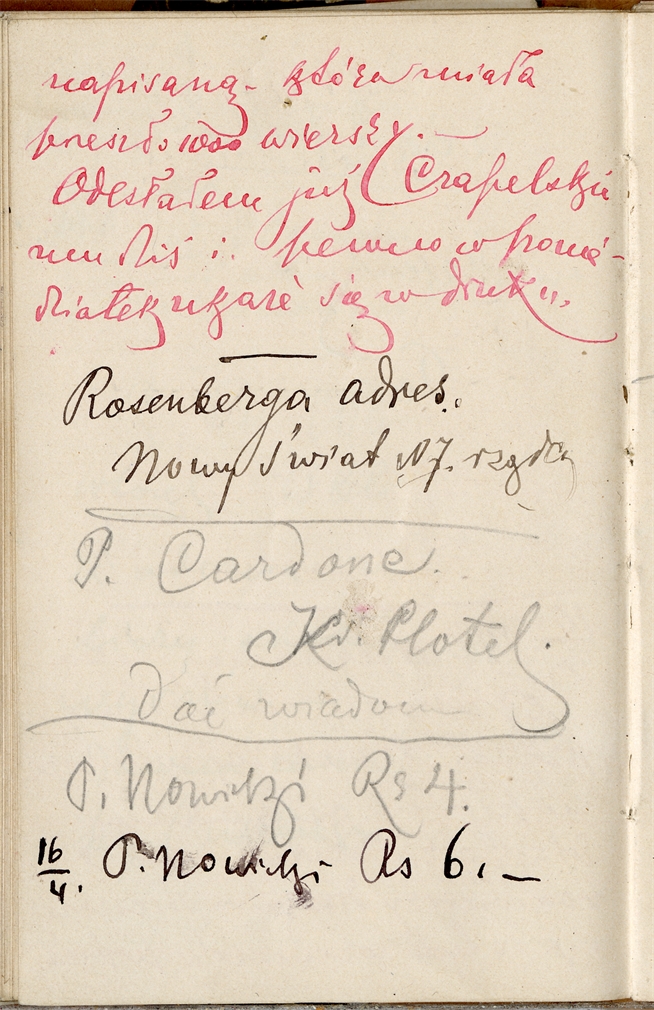 napisaną - która miała
przeszło 1000 wierszy. —
Odesłałem już Czapelski
mu dziś i pewno w ponie-
działek ukaże się w druku.
Rosenberga adres.
Nowy Świat N 7. rządca
P. Cardone.
Kr. Plotel.
Dać wiadom
P. Nowicki Rs 4.
16/4. P. Nowicki Rs 6. —